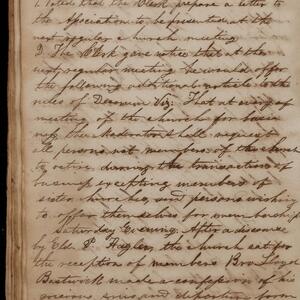 1. Voted that the Clerk prepare a letter to
the Association to be presented at the
next regular church meeting
2. The Clerk gave notice that at the
next regular meeting he would offer
the following additional article to the
rules of Decorum Viz: That at every
meeting of the church for busi-
ness the Moderator shall request
all persons not members of the church
to retire, during the transaction of
business excepting members of
sister churches, and persons wishing
to offer themselves for membership
Saturday Evening. After a discourse
by Eld. P. the church sat for
the reception of members Bro. Lloyd
Bastwick made a confession of his
grievous sins and departure from